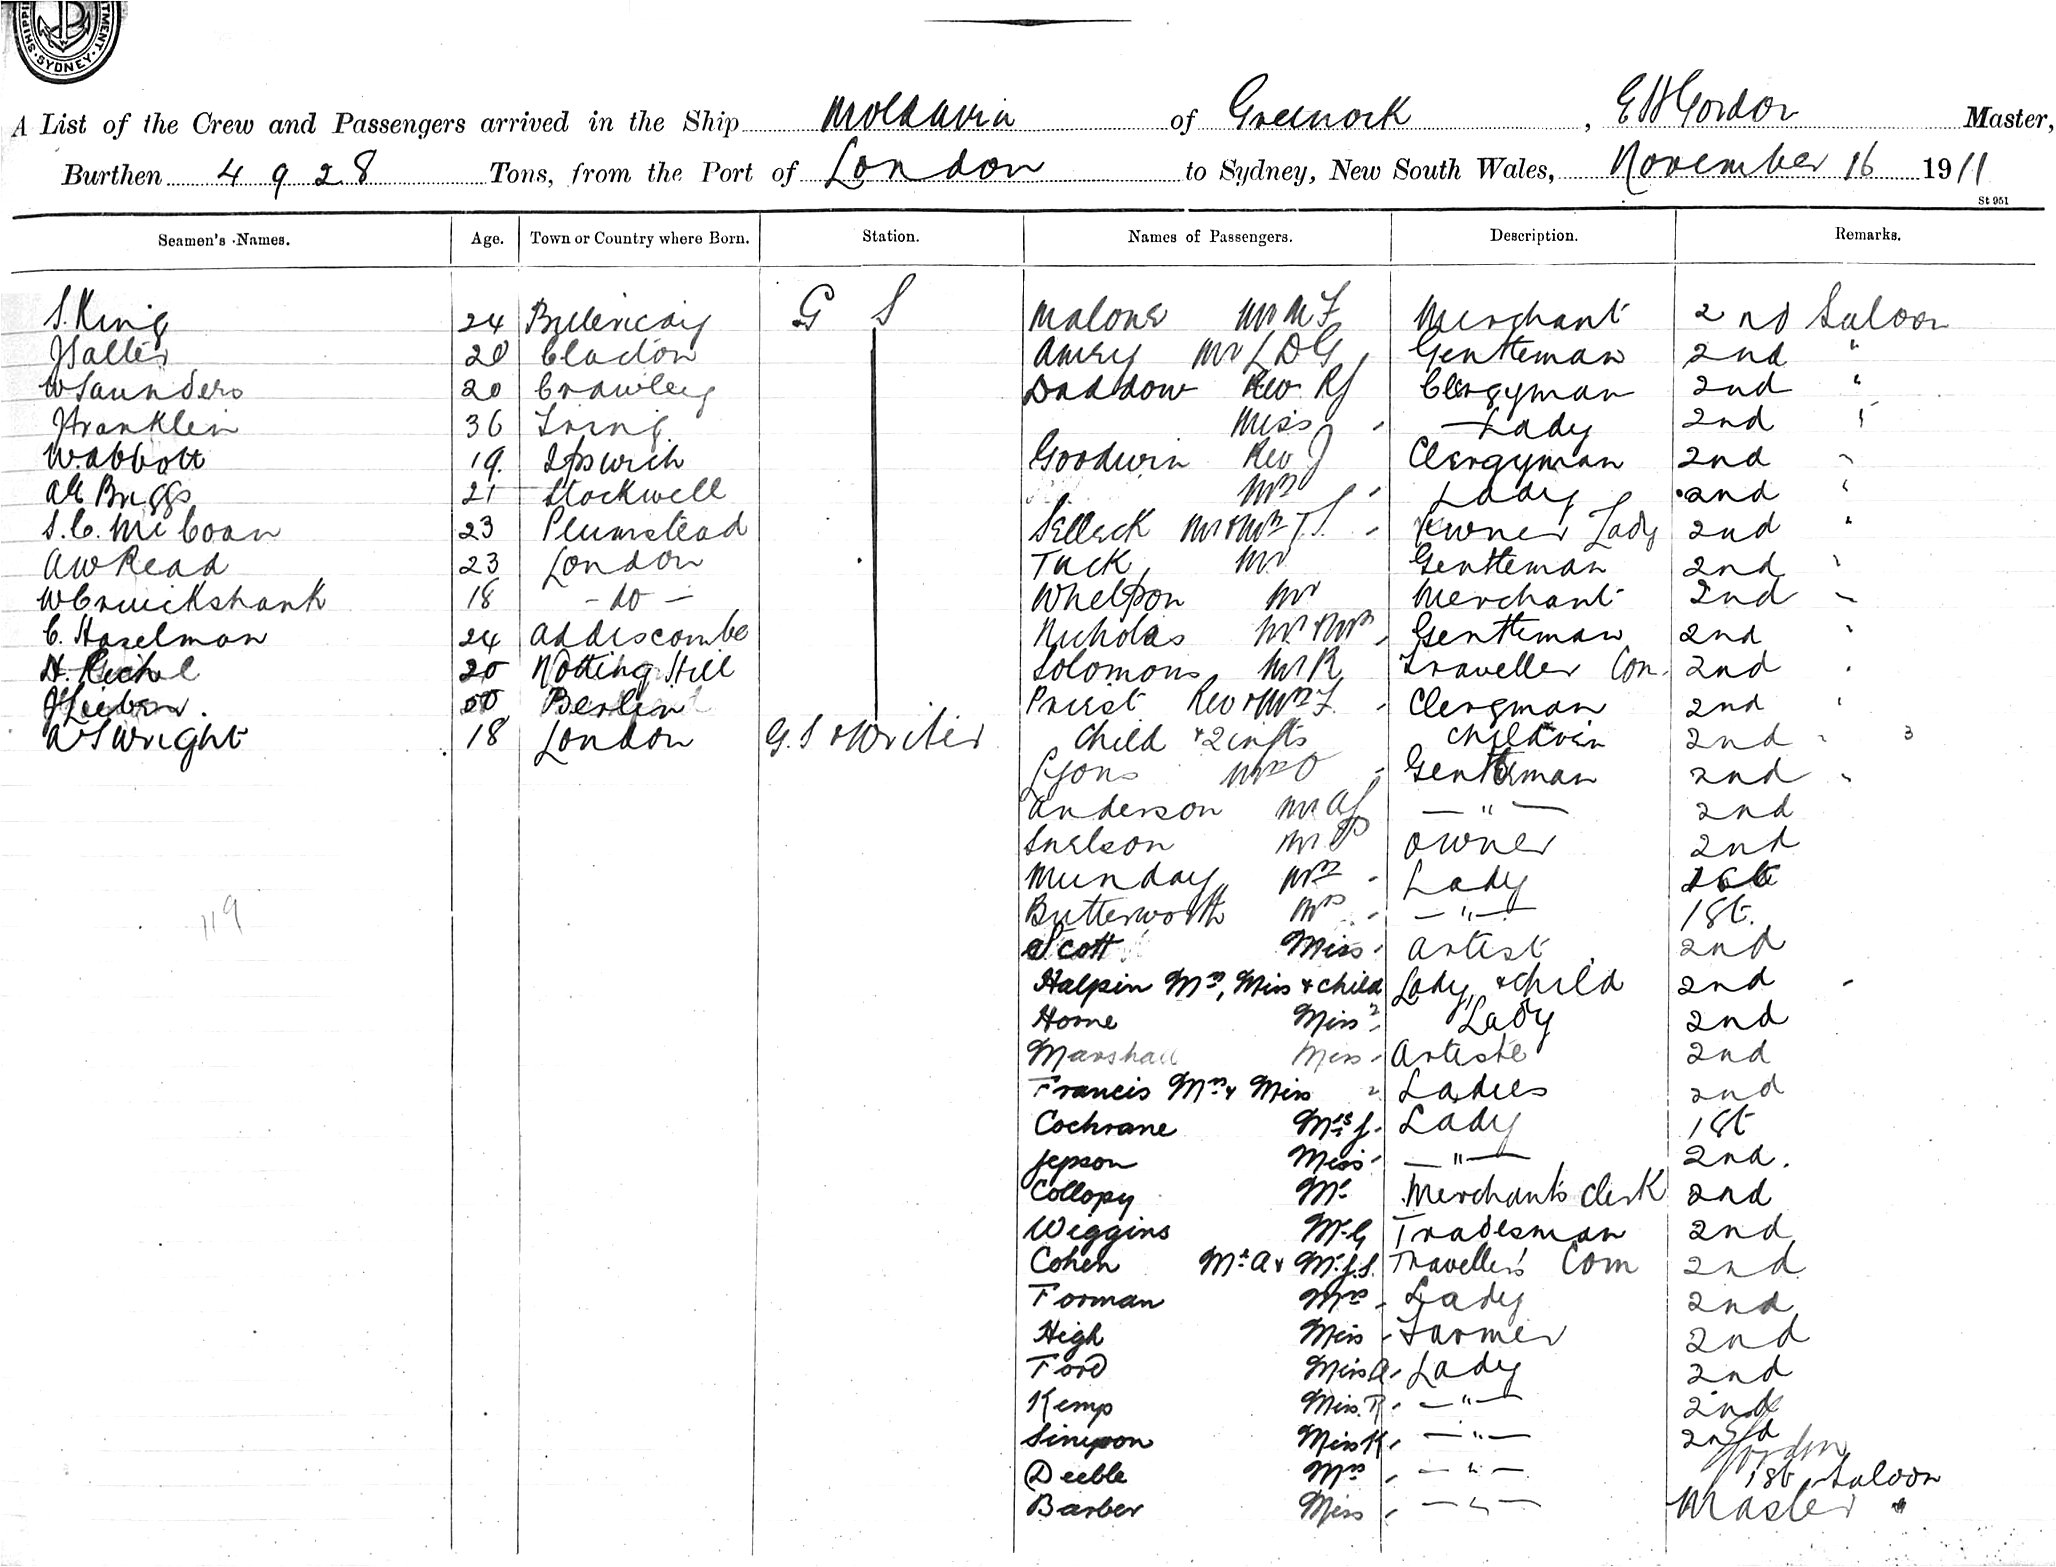 SHIPPI TMENT. SYDNEY.
A List of the Crew and Passengers arrived in the Ship Moldavia of Greenock, E H Gordon Master,
Burthen 4928 Tons, from the Port of London to Sydney, New South Wales, November 16 1911
St 951
Seamen's Names. Age. Town or Country where Born. Station. Names of Passengers. Description. Remarks.
S. King 24 Billericay G S Malone Mr M F Merchant 2nd Saloon
J Salter 20 Clacton Amery Mr L D G Gentleman 2nd "
W Saunders 20 Crawley Daddow Rev RJ Clergyman 2nd "
J Franklin 36 Tring Miss Lady 2nd "
W. Abbott 19. Ipswich Goodwin Rev J Clergyman 2nd "
Briggs 21 Stockwell Mrs Lady 2nd "
S. C. McCoan 23 Plumstead Selleck Mr & Mrs T.S. Owner Lady 2nd "
A W Read 23 London Tuck Mr Gentleman 2nd "
W Cruickshank 18 - do - Whelpon Mr Merchant 2nd "
C. Haselman 24 Addiscombe Nicholas Mr & Mrs Gentleman 2nd "
H. 20 Notting Hill Solomons Mr R Traveller Com. 2nd "
50 Berlin Priest Rev & Mrs F Clergman 2nd "
A S Wright 18 London G. S & Writer Child & 2 infts Children 2nd " 3
Lyons O Gentleman 2nd "
Anderson Mr AJ — " — 2nd
Snelson Mr P Owner 2nd
119 Munday Mrs Lady 1st
Butterworth Mrs — " — 1st.
Scott Miss Artist 2nd
Halpin Mrs, Miss & child Lady & child 2nd
Horne Miss Lady 2nd
Marshall Miss Artiste 2nd
Francis Mrs & Miss Ladies 2nd
Cochrane Mrs J. Lady 1st
Jepson Miss — " — 2nd.
Collopy Mr Merchants Clerk 2nd
Wiggins Mr G Tradesman 2nd
Cohen Mr A & Mr J.S. Travellers Com 2nd
Forman Mrs Lady 2nd
High Miss Farmer 2nd
Ford Miss A Lady 2nd
Kemp Miss. R — " — 2nd
Simpson Miss K — " — 2nd
Gordon
Deeble Mrs — " — 1st Saloon
Barber Miss — " — Master "